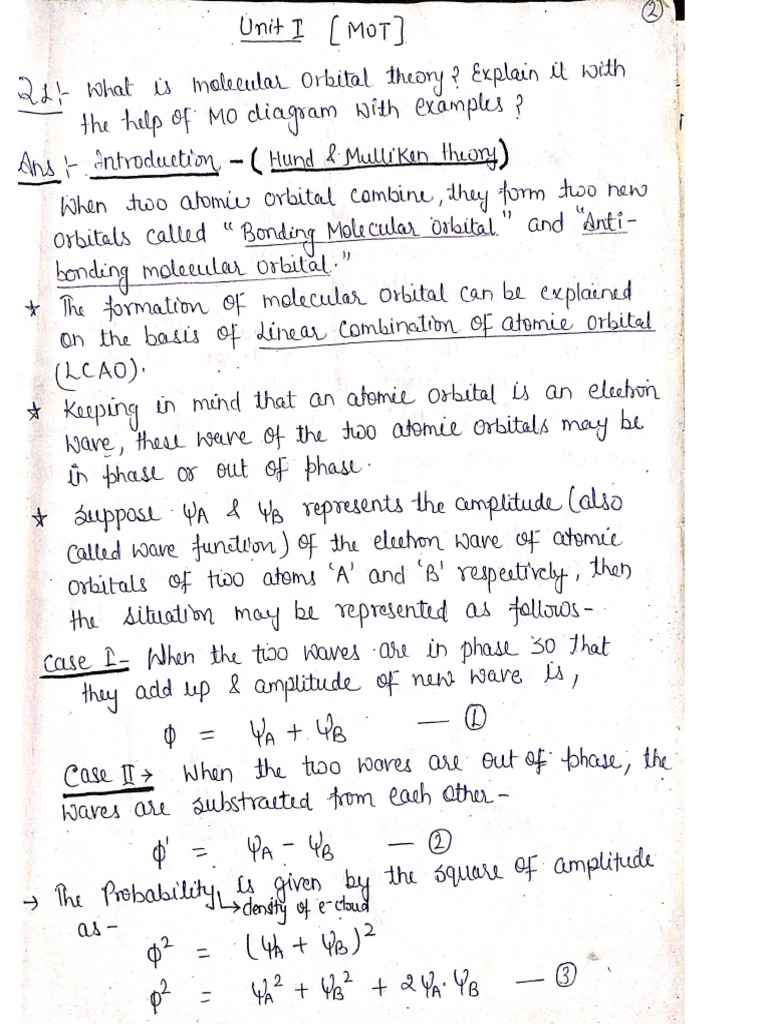 ②
Unit I [MOT]
Q1:- What is molecular orbital theory? Explain it with
the help of MO diagram with examples?
Ans:- Introduction - (Hund & Mulliken theory)
When two atomic orbital combine, they form two new
orbitals called "Bonding Molecular orbital." and "Anti-
bonding molecular orbital."
★ The formation of molecular orbital can be explained
on the basis of Linear Combination of atomic orbital
(LCAO).
★ Keeping in mind that an atomic orbital is an electron
wave, these wave of the two atomic orbitals may be
in phase or out of phase.
★ Suppose ψA & ψB represents the amplitude (also
called wave function) of the electron wave of atomic
orbitals of two atoms 'A' and 'B' respectively, then
the situation may be represented as follows-
Case I- When the two waves are in phase so that
they add up & amplitude of new wave is,
ϕ = ψA + ψB — ①
Case II → When the two waves are out of phase, the
waves are substracted from each other-
ϕ' = ψA - ψB — ②
→ The Probability is given by the square of amplitude
↳density of e-cloud
as-
ϕ² = (ψA + ψB)²
ϕ² = ψA² + ψB² + 2ψA·ψB — ③